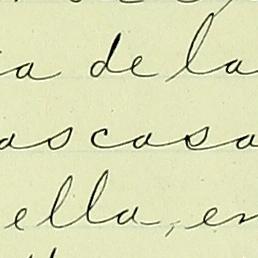 a de la
as casa
ella, en